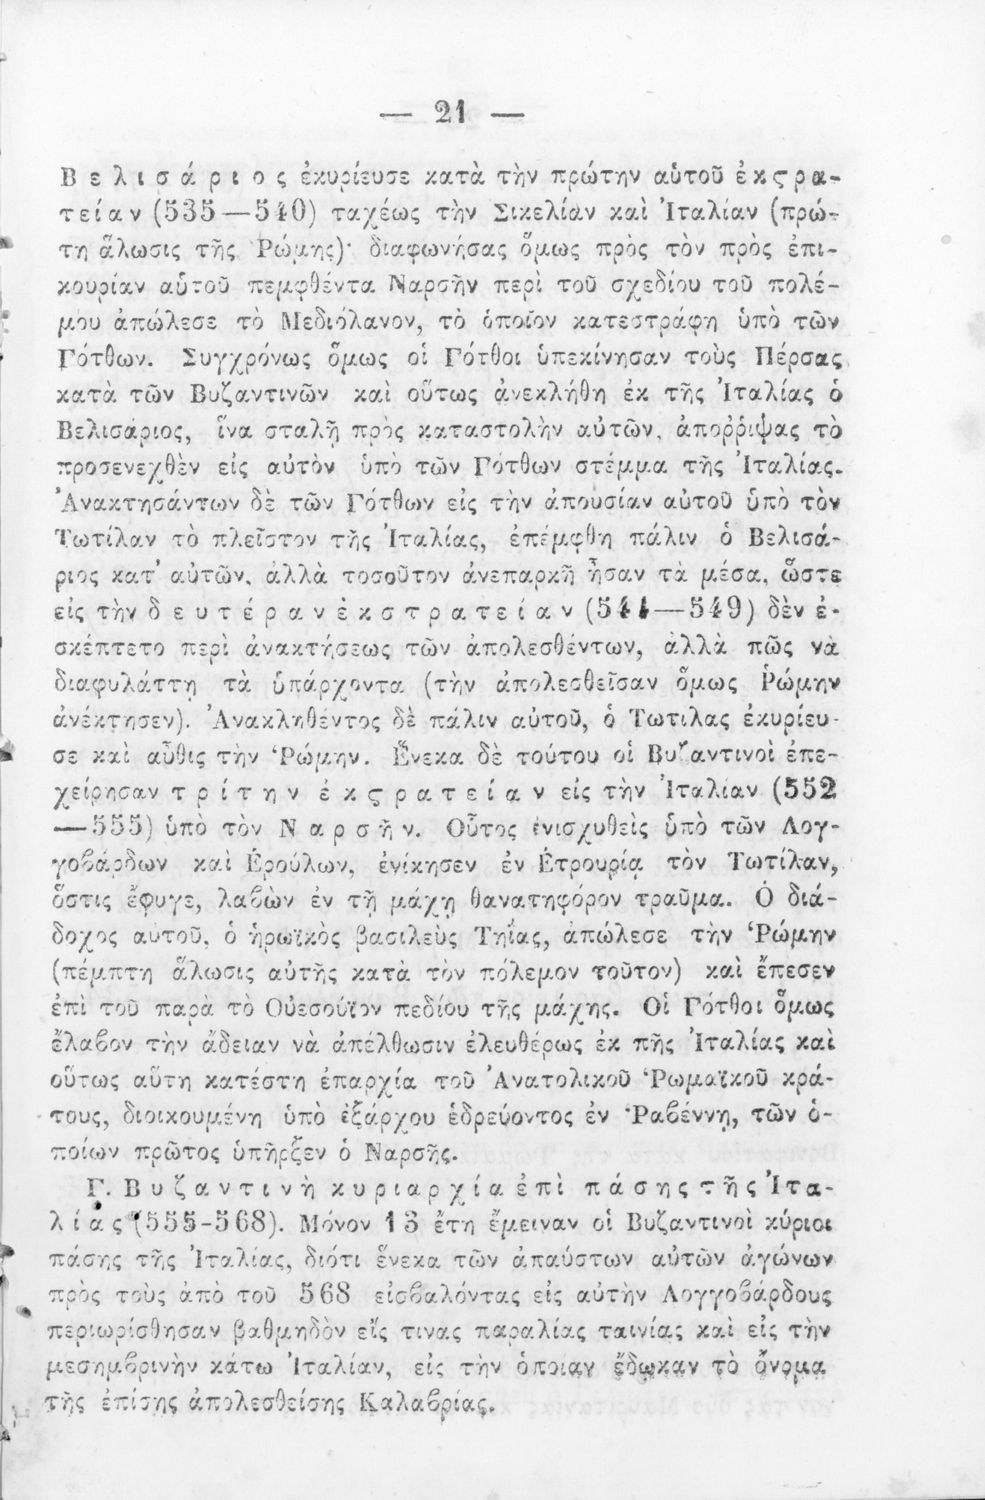 — 21 —
Βελισάριος ἐκυρίευσε κατὰ τὴν πρώτην αὑτοῦ ἐκςρα-
τείαν (535—540) ταχέως τὴν Σικελίαν καὶ Ἰταλίαν (πρώ-
τη ἅλωσις τῆς Ῥώμης)· διαφωνήσας ὅμως πρὸς τὸν πρὸς ἐπι-
κουρίαν αὑτοῦ πεμφθέντα Ναρσῆν περὶ τοῦ σχεδίου τοῦ πολέ-
μου ἀπώλεσε τὸ Μεδιόλανον, τὸ ὁποῖον κατεστράφη ὑπὸ τῶν
Γότθων. Συγχρόνως ὅμως οἱ Γότθοι ὑπεκίνησαν τοὺς Πέρσας
κατὰ τῶν Βυζαντινῶν καὶ οὕτως ἀνεκλήθη ἐκ τῆς Ἰταλίας ὁ
Βελισάριος, ἵνα σταλῇ πρὸς καταστολὴν αὐτῶν, ἀποῤῥιψας τὸ
προσενεχθὲν εἰς αὐτὸν ὑπὸ τῶν Γότθων στέμμα τῆς Ἰταλίας.
Ἀνακτησάντων δὲ τῶν Γότθων εἰς τὴν ἀπουσίαν αὐτοῦ ὑπὸ τὸν
Τωτίλαν τὸ πλεῖστον τῆς Ἰταλίας, ἐπέμφθη πάλιν ὁ Βελισά-
ριος κατ' αὐτῶν, ἀλλὰ τοσοῦτον ἀνεπαρκῆ ἦσαν τὰ μέσα, ὥστε
εἰς τὴν δευτέραν ἐκστρατείαν (544—549) δὲν ἐ-
σκέπτετο περὶ ἀνακτήσεως τῶν ἀπολεσθέντων, ἀλλὰ πῶς νὰ
διαφυλάττῃ τὰ ὑπάρχοντα (τὴν ἀπολεσθεῖσαν ὅμως Ῥώμην
ἀνέκτησεν). Ἀνακληθέντος δὲ πάλιν αὐτοῦ, ὁ Τωτιλας ἐκυρίευ-
σε καὶ αὖθις τὴν Ῥώμην. Ἕνεκα δὲ τούτου οἱ Βυζαντινοὶ ἐπε-
χείρησαν τρίτην ἐκςρατείαν εἰς τὴν Ἰταλίαν (552
—555) ὑπὸ τὸν Ναρσῆν. Οὗτος ἐνισχυθεὶς ὑπὸ τῶν Λογ-
γοβάρδων καὶ Ἐρούλων, ἐνίκησεν ἐν Ἐτρουρίᾳ τὸν Τωτίλαν,
ὅστις ἔφυγε, λαβὼν ἐν τῇ μάχῃ θανατηφόρον τραῦμα. Ὁ διά-
δοχος αὐτοῦ, ὁ ἡρωϊκὸς βασιλεὺς Τηΐας, ἀπώλεσε τὴν Ῥώμην
(πέμπτη ἅλωσις αὐτῆς κατὰ τὸν πόλεμον τοῦτον) καὶ ἔπεσεν
ἐπὶ τοῦ παρὰ τὸ Οὐεσούϊον πεδίου τῆς μάχης. Οἱ Γότθοι ὅμως
ἔλαβον τὴν ἄδειαν νὰ ἀπέλθωσιν ἐλευθέρως ἐκ πῆς Ἰταλίας καὶ
οὕτως αὕτη κατέστη ἐπαρχία τοῦ Ἀνατολικοῦ Ῥωμαϊκοῦ κρά-
τους, διοικουμένη ὑπὸ ἐξάρχου ἑδρεύοντος ἐν Ῥαβέννῃ, τῶν ὁ-
ποίων πρῶτος ὑπῆρξεν ὁ Ναρσῆς.
Γ. Βυζαντινὴ κυριαρχία ἐπὶ πάσης τῆς Ἰτα-
λίας (555-568). Μόνον 13 ἔτη ἔμειναν οἱ Βυζαντινοὶ κύριοι
πάσης τῆς Ἰταλίας, διότι ἕνεκα τῶν ἀπαύστων αὐτῶν ἀγώνων
πρὸς τοὺς ἀπὸ τοῦ 568 εἰσβαλόντας εἰς αὐτὴν Λογγοβάρδους
περιωρίσθησαν βαθμηδὸν εἴς τινας παραλίας ταινίας καὶ εἰς τὴν
μεσημβρινὴν κάτω Ἰταλίαν, εἰς τὴν ὁποίαν ἔδωκαν τὸ ὄνομα
τῆς ἐπίσης ἀπολεσθείσης Καλαβρίας.